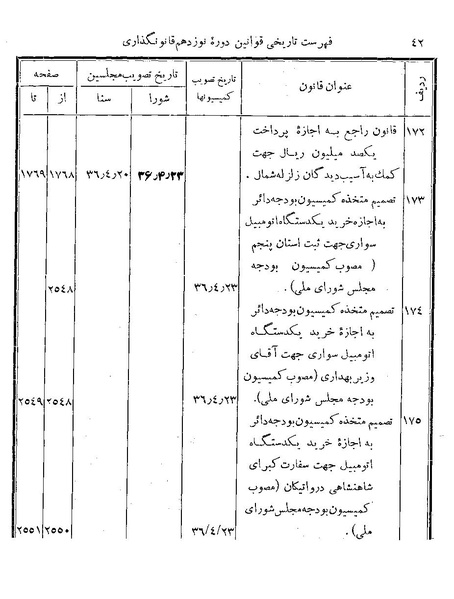 ٤٢ فهرست تاریخی قوانین دورهٔ نوزدهم قانونگذاری
ردیف عنوان قانون تاریخ تصویب کمیسیونها تاریخ تصویب مجلسین صفحه
شورا سنا از تا
١٧٢ قانون راجع به اجازهٔ پرداخت
یکصد میلیون ریال جهت
کمك به آسیب دیدگان زلزله شمال . ٣٦٫٤٫٢٣ ٣٦٫٤٫٢٠ ١٧٦٨ ١٧٦٩
١٧٣ تصمیم متخذه کمیسیون بودجه دائر
به اجازه خرید یکدستگاه اتومبیل
سواری جهت ثبت استان پنجم
( مصوب کمیسیون بودجه
مجلس شورای ملی ) . ٣٦٫٤٫٢٣ ٢٥٤٨
١٧٤ تصمیم متخذه کمیسیون بودجه دائر
به اجازهٔ خرید یکدستگاه
اتومبیل سواری جهت آقای
وزیر بهداری (مصوب کمیسیون
بودجه مجلس شورای ملی). ٣٦٫٤٫٢٣ ٢٥٤٨ ٢٥٤٩
١٧٥ تصمیم متخذه کمیسیون بودجه دائر
به اجازهٔ خرید یکدستگاه
اتومبیل جهت سفارت کبرای
شاهنشاهی در واتیکان (مصوب
کمیسیون بودجه مجلس شورای
ملی ) . ٣٦/٤/٢٣ ٢٥٥٠ ٢٥٥١